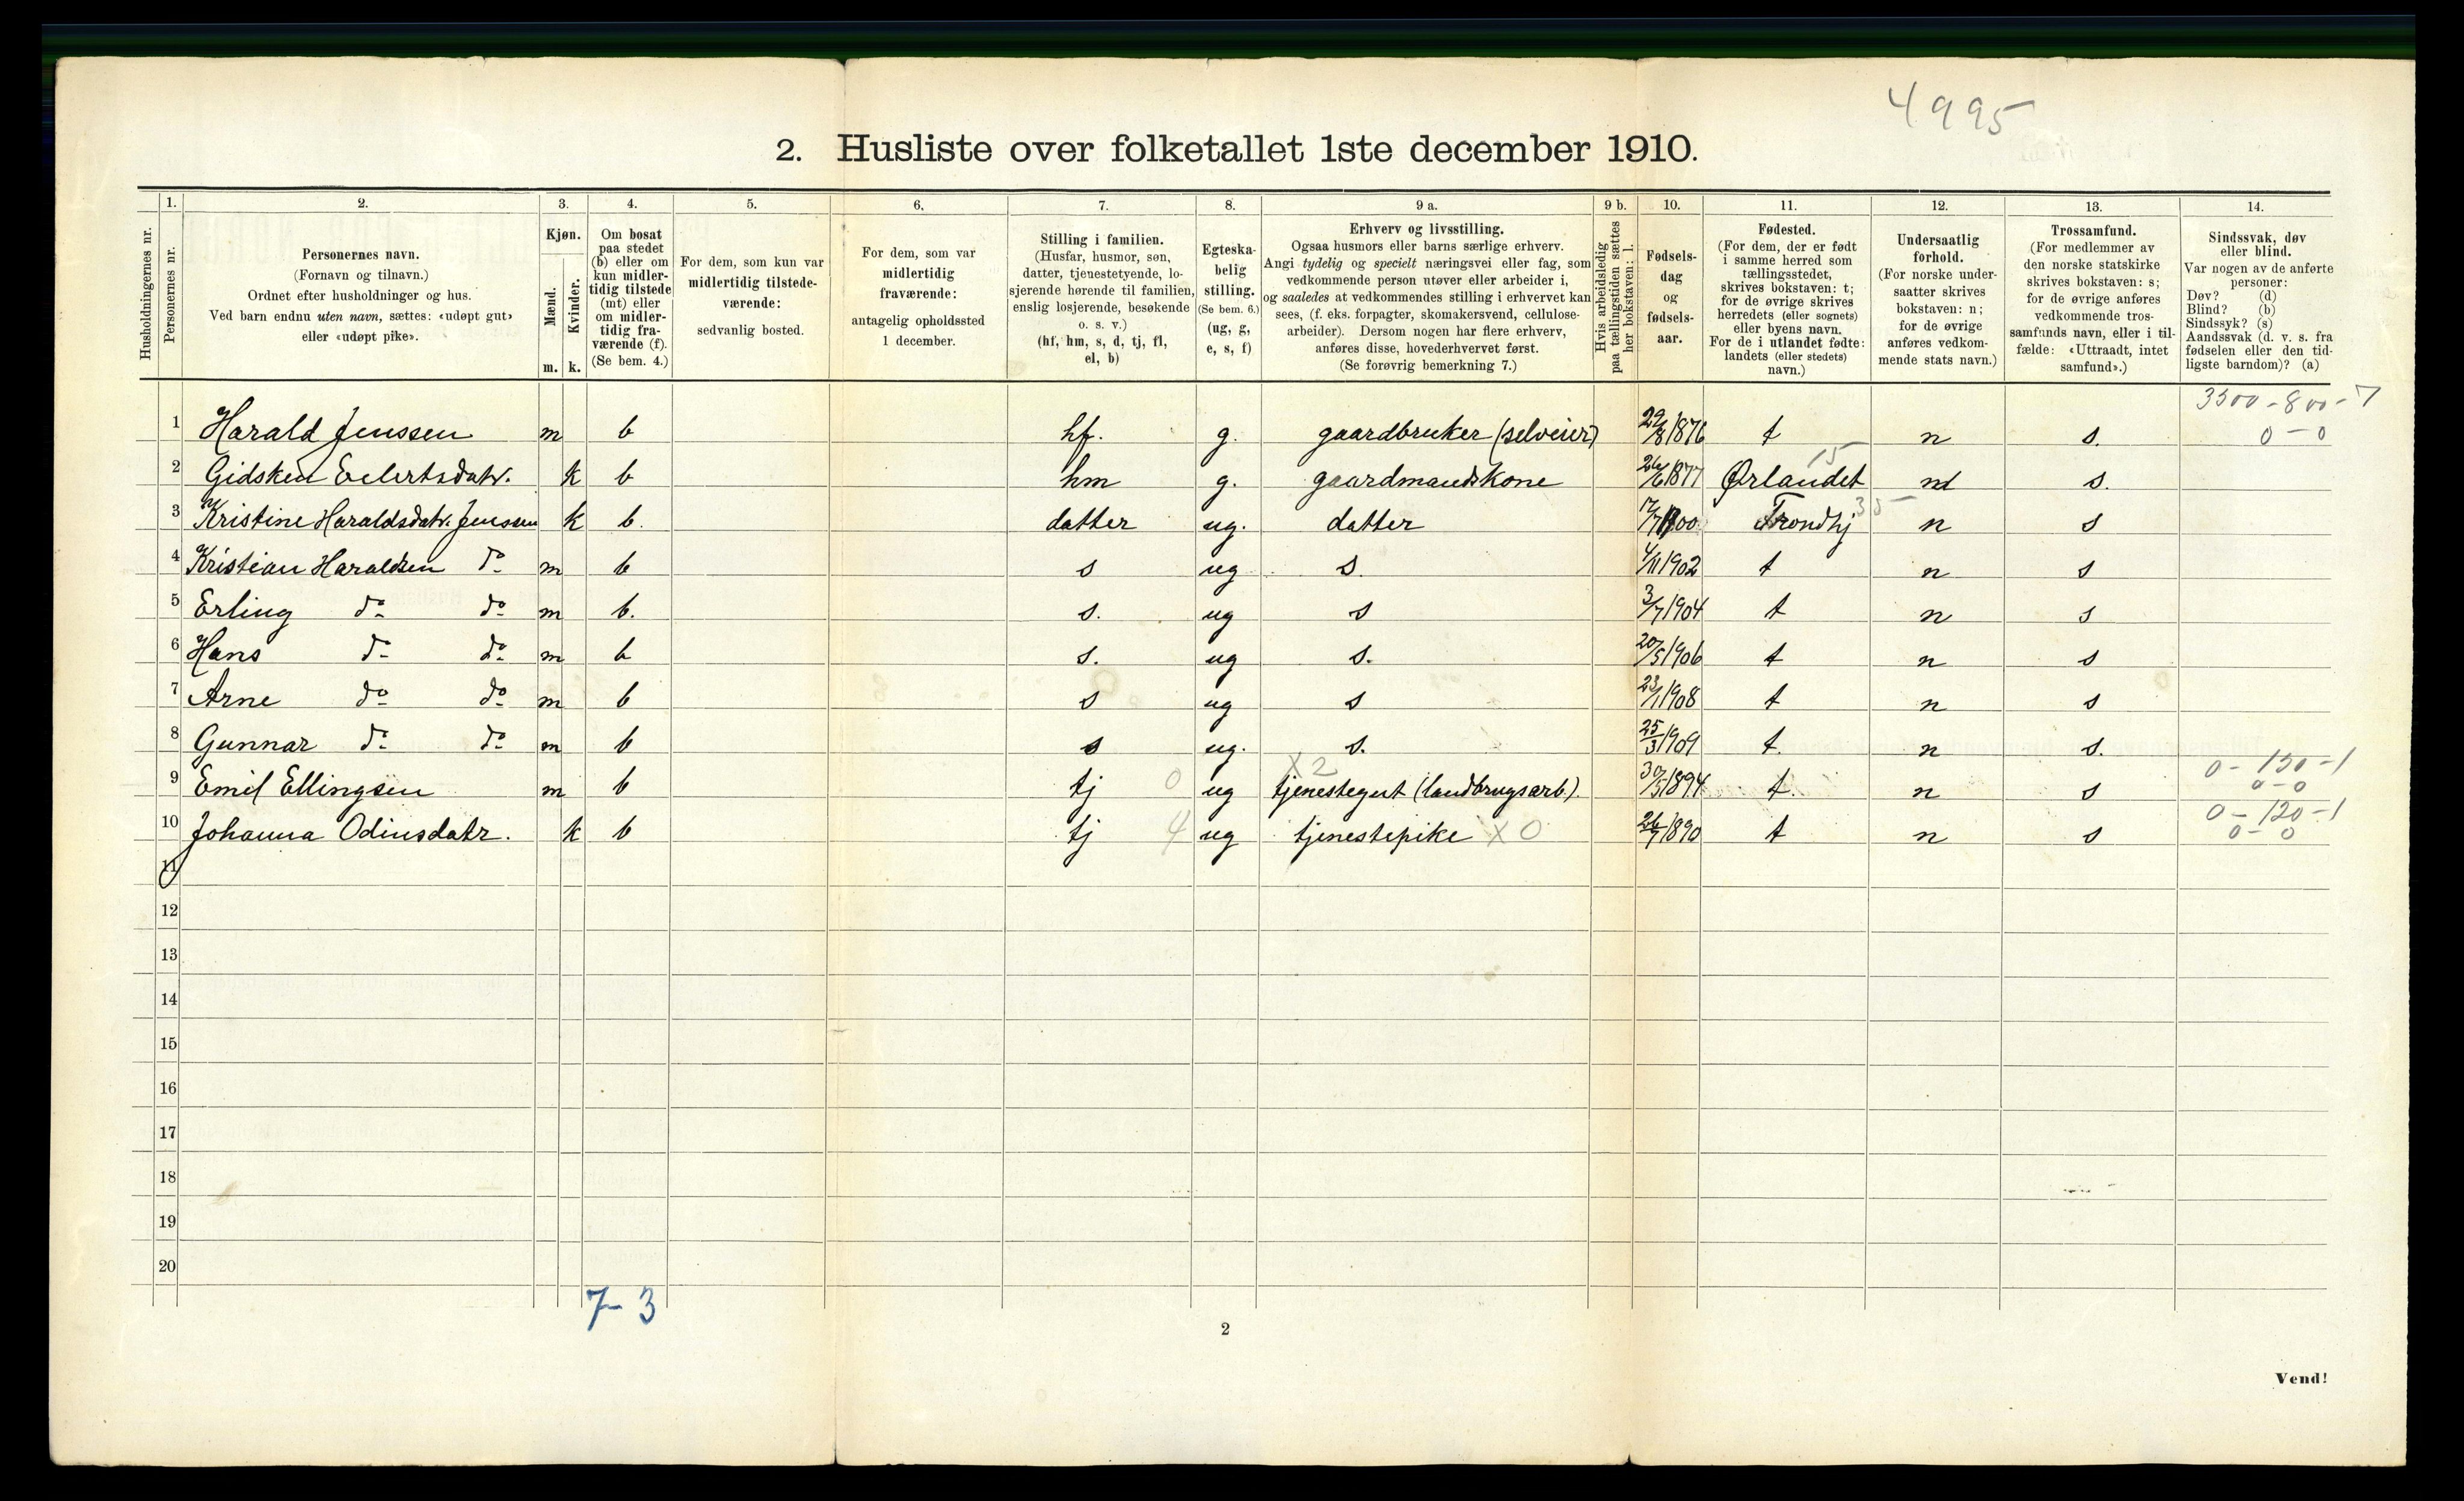 4995
2. Husliste over folketallet 1ste december 1910.
Husholdningernes nr.
1. Personernes nr.
2. Personernes navn.
(Fornavn og tilnavn.)
Ordnet efter husholdninger og hus.
Ved barn endnu uten navn, sættes: «udøpt gut»
eller «udøpt pike».
3. Kjøn.
Mænd. Kvinder.
m. k.
4. Om bosat
paa stedet
(b) eller om
kun midler-
tidig tilstede
(mt) eller
om midler-
tidig fra-
værende (f).
(Se bem. 4.)
5. For dem, som kun var
midlertidig tilstede-
værende:
sedvanlig bosted.
6. For dem, som var
midlertidig
fraværende:
antagelig opholdssted
1 december.
7. Stilling i familien.
(Husfar, husmor, søn,
datter, tjenestetyende, lo-
sjerende hørende til familien,
enslig losjerende, besøkende
o. s. v.)
(hf, hm, s, d, tj, fl,
el, b)
8. Egteska-
belig
stilling.
(Se bem. 6.)
(ug, g,
e, s, f)
9 a. Erhverv og livsstilling.
Ogsaa husmors eller barns særlige erhverv.
Angi tydelig og specielt næringsvei eller fag, som
vedkommende person utøver eller arbeider i,
og saaledes at vedkommendes stilling i erhvervet kan
sees, (f. eks. forpagter, skomakersvend, cellulose-
arbeider). Dersom nogen har flere erhverv,
anføres disse, hovederhvervet først.
(Se forøvrig bemerkning 7.)
9 b. Hvis arbeidsledig
paa tællingstiden sættes
her bokstaven: l.
10. Fødsels-
dag
og
fødsels-
aar.
11. Fødested.
(For dem, der er født
i samme herred som
tællingsstedet,
skrives bokstaven: t;
for de øvrige skrives
herredets (eller sognets)
eller byens navn.
For de i utlandet fødte:
landets (eller stedets)
navn.)
12. Undersaatlig
forhold.
(For norske under-
saatter skrives
bokstaven: n;
for de øvrige
anføres vedkom-
mende stats navn.)
13. Trossamfund.
(For medlemmer av
den norske statskirke
skrives bokstaven: s;
for de øvrige anføres
vedkommende tros-
samfunds navn, eller i til-
fælde: «Uttraadt, intet
samfund».)
14. Sindssvak, døv
eller blind.
Var nogen av de anførte
personer:
Døv? (d)
Blind? (b)
Sindssyk? (s)
Aandssvak (d. v. s. fra
fødselen eller den tid-
ligste barndom)? (a)
3300-800-7
1 Harald Jenssen m b hf. g. gaardbruker (selveier) 29/8 1876 t n s. 0-0
15
2 Gidsken Eilertsdatr. k b hm g. gaardmandskone 26/6 1877 Ørlandet n s.
3 Kristine Haraldsdatr. Jenssen k b. datter ug. datter 17/7 1900 Trondhj 35 n s
4 Kristian Haraldsen do m b s ug s. 4/11 1902 t n s
5 Erling do do m b. s. ug s 3/7 1904 t n s
6 Hans do do m b s. ug s. 20/5 1906 t n s
7 Arne do do m b s ug s 23/1 1908 t n s
8 Gunnar do do m b s ug. s. 25/3 1909 t. n s.
X2 0-150-1
9 Emil Ellingsen m b tj 0 ug tjenestegut (landbrugsarb). 30/5 1894 t. n s 0-0
0-120-1
10 Johanna Odinsdatr. k b tj 4 ug tjenestepike X0 26/7 1890 t n s 0-0
11
12
13
14
15
16
17
18
19
20
7-3
2
Vend!